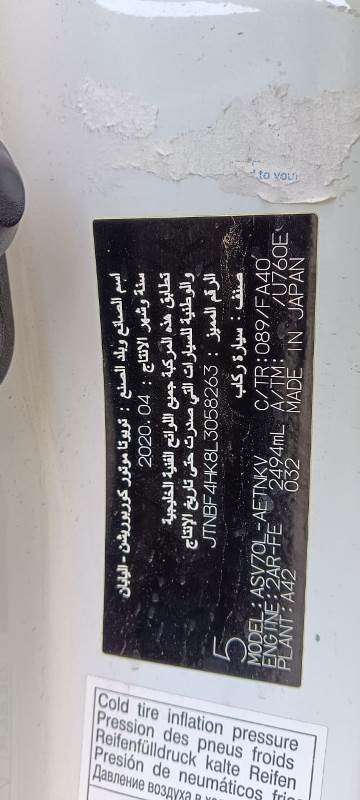 d to your
اسم الصانع وبلد الصنع : تويوتا موتور كوربوريشن -اليابان
سنة وشهر الانتاج : 2020.04
تطابق هذه المركبة جميع اللوائح الفنية الخليجية
والوطنية للسيارات التي صدرت حتى تاريخ الإنتاج
الرقم المميز : JTNBF4HK8L3058263
صنف : سيارة ركاب
5
MODEL:ASV70L-AETNKV C/TR:089/FA40
ENGINE:2AR-FE 2494mL A/TM: /U760E
PLANT:A42 032 MADE IN JAPAN
Cold tire inflation pressure
Pression des pneus froids
Reifenfülldruck kalte Reifen
Presión de neumáticos fríos
Давление воздуха в